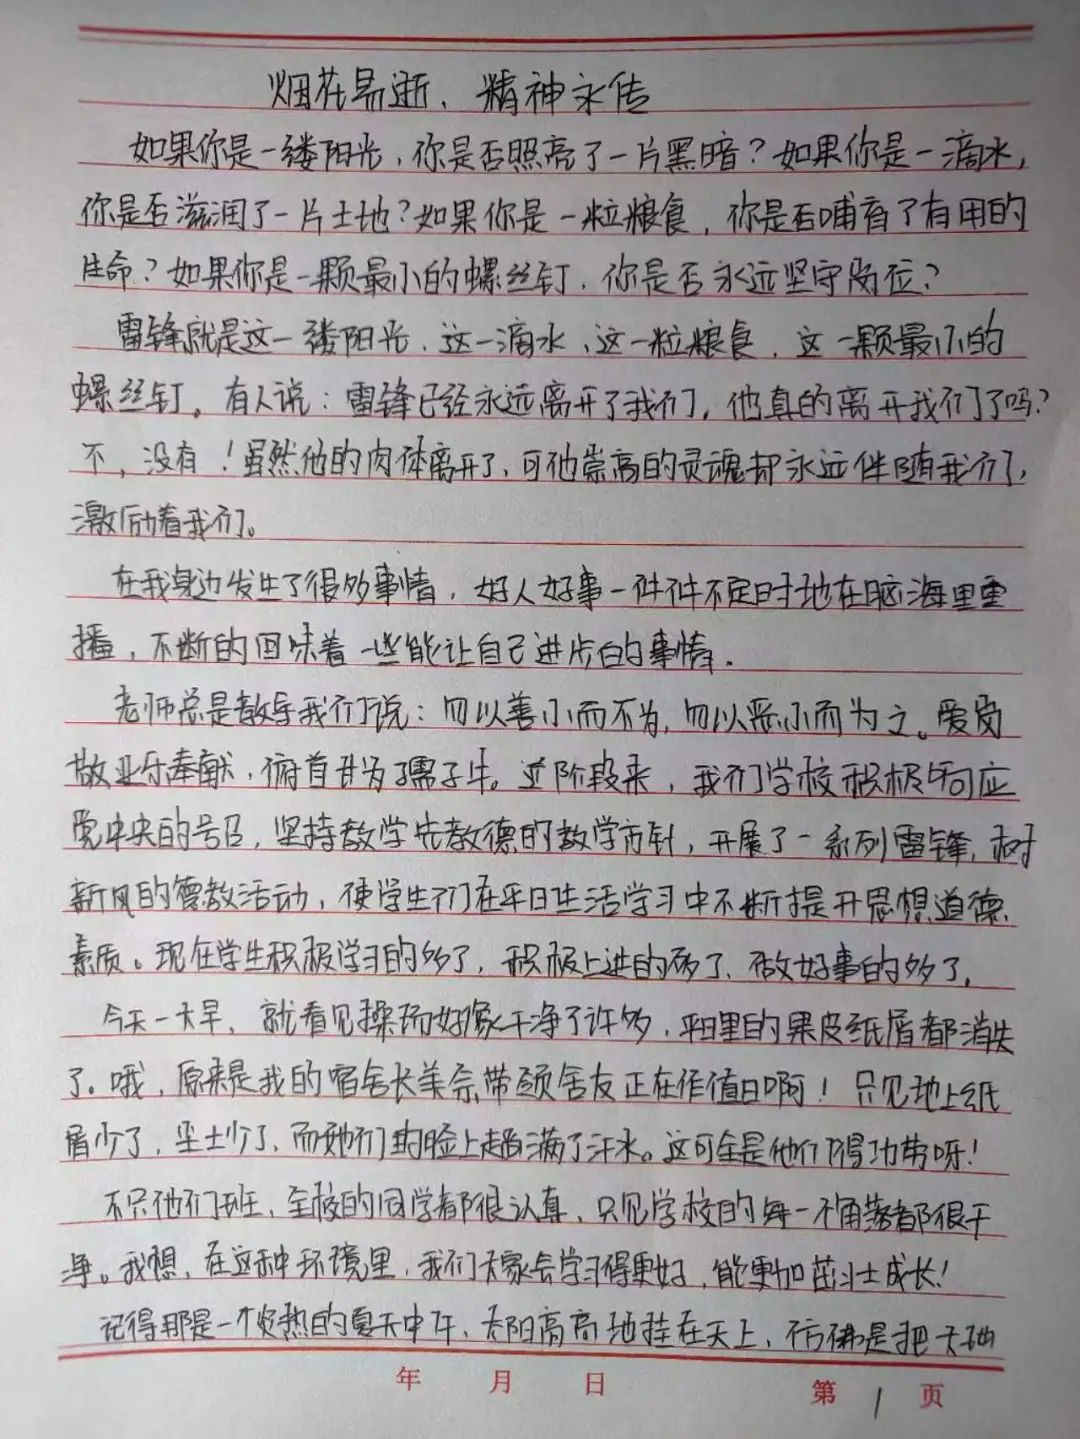 烟花易逝、精神永传
如果你是一缕阳光,你是否照亮了一片黑暗?如果你是一滴水,
你是否滋润了一片土地?如果你是一粒粮食,你是否哺育了有用的
生命?如果你是一颗最小的螺丝钉,你是否永远坚守岗位?
雷锋就是这一缕阳光,这一滴水,这一粒粮食,这一颗最小的
螺丝钉。有人说:雷锋已经永远离开了我们,他真的离开我们了吗?
不,没有!虽然他的肉体离开了,可他崇高的灵魂却永远伴随我们,
激励着我们。
在我身边发生了很多事情,好人好事一件件不定时地在脑海里重
播,不断的回味着一些能让自己进步的事情.
老师总是教导我们说:勿以善小而不为,勿以恶小而为之。爱岗
敬业乐奉献,俯首甘为孺子牛。这阶段来,我们学校积极响应
党中央的号召,坚持教学先教德的教学方针,开展了一系列雷锋,树
新风的德教活动,使学生们在平日生活学习中不断提升思想道德
素质。现在学生积极学习的多了,积极上进的多了、做好事的多了,
今天一大早,就看见操场好像干净了许多,平日里的果皮纸屑都消失
了。哦,原来是我的宿舍长美奈带领舍友正在作值日啊!只见地上纸
屑少了,尘土少了,而她们的脸上趟满了汗水。这可全是他们得功劳呀!
不只他们班,全校的同学都很认真,只见学校的每一个角落都很干
净。我想,在这种环境里,我们大家会学习得更好,能更加茁壮成长!
记得那是一个炎热的夏天中午、太阳高高地挂在天上、仿佛是把大地
年 月 日 第 1 页